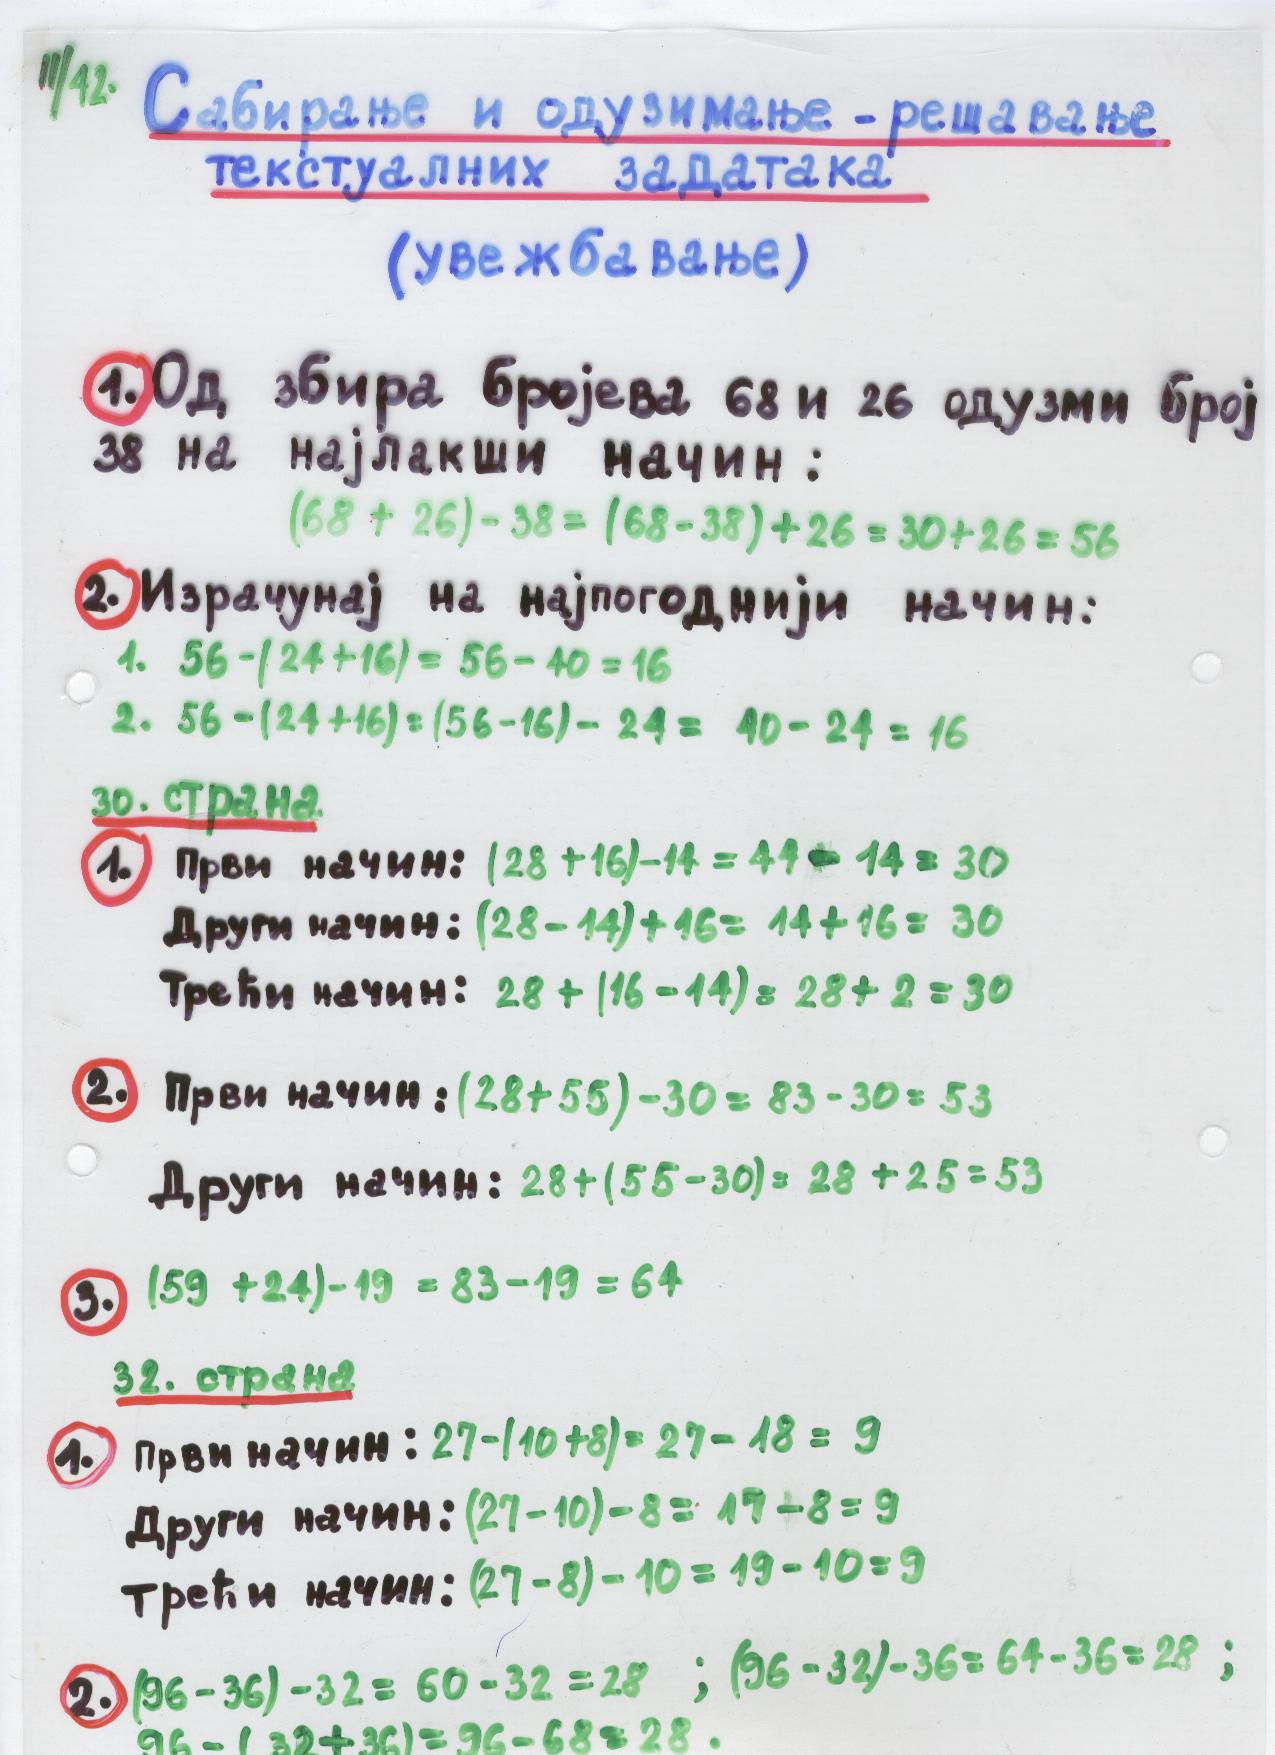 II/42.
Сабирање и одузимање - решавање
текстуалних задатака
(увежбавање)
1. Од збира бројева 68 и 26 одузми број
38 на најлакши начин:
(68 + 26) - 38 = (68 - 38) + 26 = 30 + 26 = 56
2. Израчунај на најпогоднији начин:
1. 56 - (24 + 16) = 56 - 40 = 16
2. 56 - (24 + 16) = (56 - 16) - 24 = 40 - 24 = 16
30. страна
1. Први начин: (28 + 16) - 14 = 44 - 14 = 30
Други начин: (28 - 14) + 16 = 14 + 16 = 30
Трећи начин: 28 + (16 - 14) = 28 + 2 = 30
2. Први начин: (28 + 55) - 30 = 83 - 30 = 53
Други начин: 28 + (55 - 30) = 28 + 25 = 53
3. (59 + 24) - 19 = 83 - 19 = 64
32. страна
1. Први начин: 27 - (10 + 8) = 27 - 18 = 9
Други начин: (27 - 10) - 8 = 17 - 8 = 9
Трећи начин: (27 - 8) - 10 = 19 - 10 = 9
2. (96 - 36) - 32 = 60 - 32 = 28 ; (96 - 32) - 36 = 64 - 36 = 28 ;
96 - (32 + 36) = 96 - 68 = 28 .